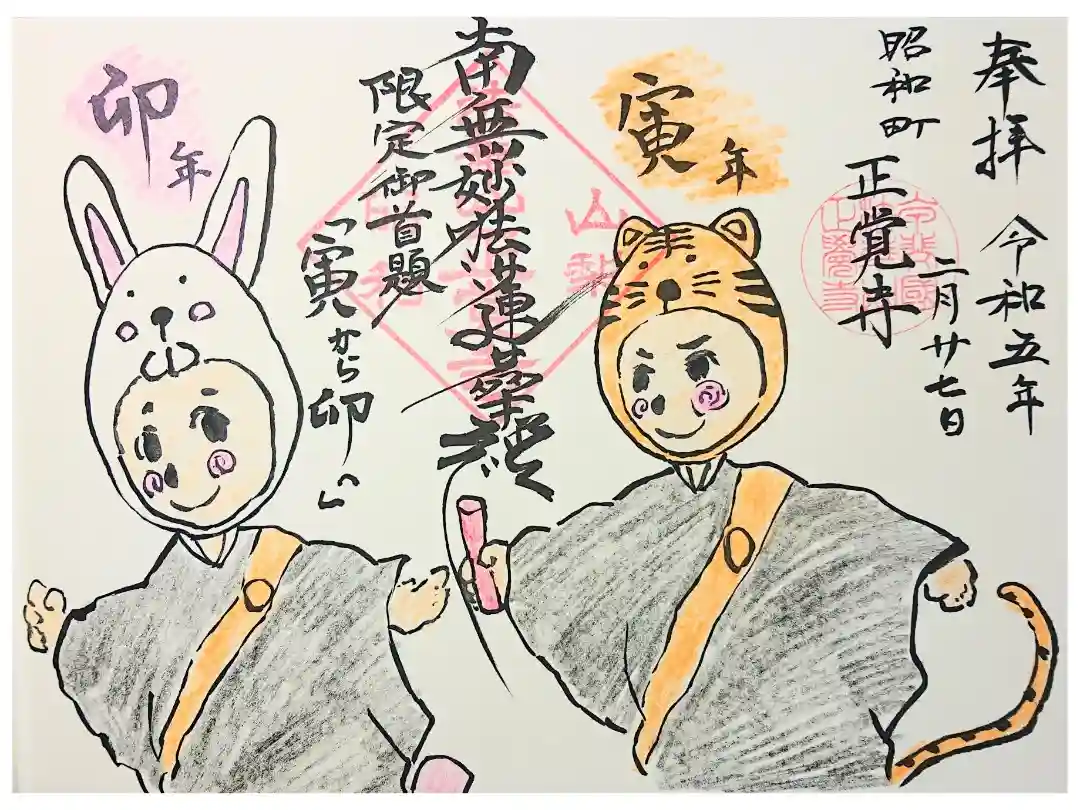 奉拝 令和五年
二月廿七日
昭和町 正覚寺
寅年
山梨
南無妙法蓮華経
限定御首題
「寅から卯へ」
卯年